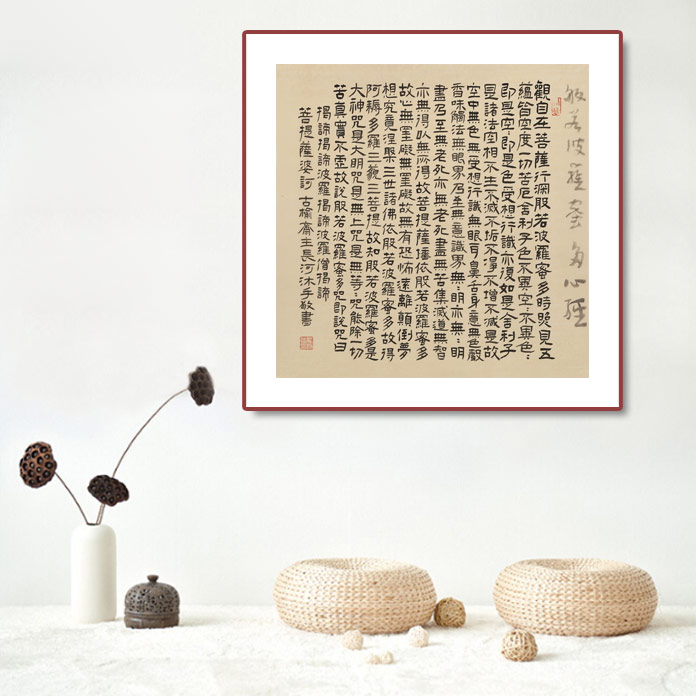 般若波羅蜜多心經
觀自在菩薩行深般若波羅蜜多時照見五
蘊皆空度一切苦厄舍利子色不異空々不異色々
即是空々即是色受想行識亦復如是舍利子
是諸法空相不生不滅不垢不淨不增不減是故
空中無色無受想行識無眼耳鼻舌身意無色聲
香味觸法無眼界乃至無意識界無々明亦無々明
盡乃至無老死亦無老死盡無苦集滅道無智
亦無得以無所得故菩提薩埵依般若波羅蜜多
故心無罣礙無罣礙故無有恐怖遠離顛倒夢
想究竟涅槃三世諸佛依般若波羅蜜多故得
阿耨多羅三藐三菩提故知般若波羅蜜多是
大神咒是大明咒是無上咒是無等々咒能除一切
苦真實不虛故說般若波羅蜜多咒即說咒曰
揭諦揭諦波羅揭諦波羅僧揭諦
菩提薩婆訶 古榆齋主長河沐手敬書